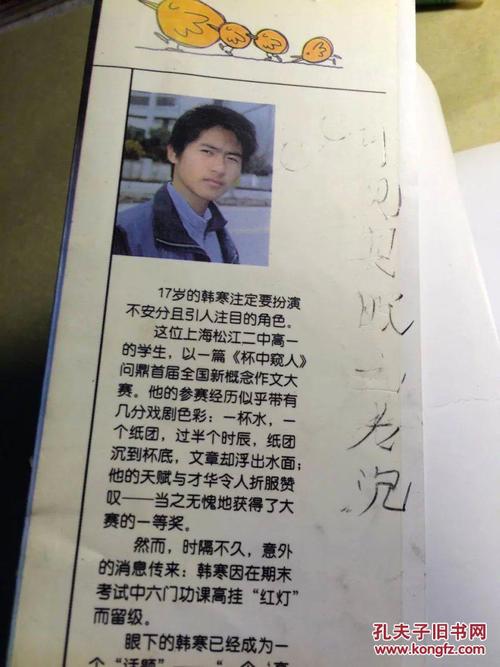 17岁的韩寒注定要扮演
不安分且引人注目的角色。
这位上海松江二中高一
的学生，以一篇《杯中窥人》
问鼎首届全国新概念作文大
赛。他的参赛经历似乎带有
几分戏剧色彩：一杯水，一
个纸团，过半个时辰，纸团
沉到杯底，文章却浮出水面；
他的天赋与才华令人折服赞
叹——当之无愧地获得了大
赛的一等奖。
然而，时隔不久，意外
的消息传来：韩寒因在期末
考试中六门功课高挂“红灯”
而留级。
眼下的韩寒已经成为一
个“话题”
孔夫子旧书网
www.kongfz.com